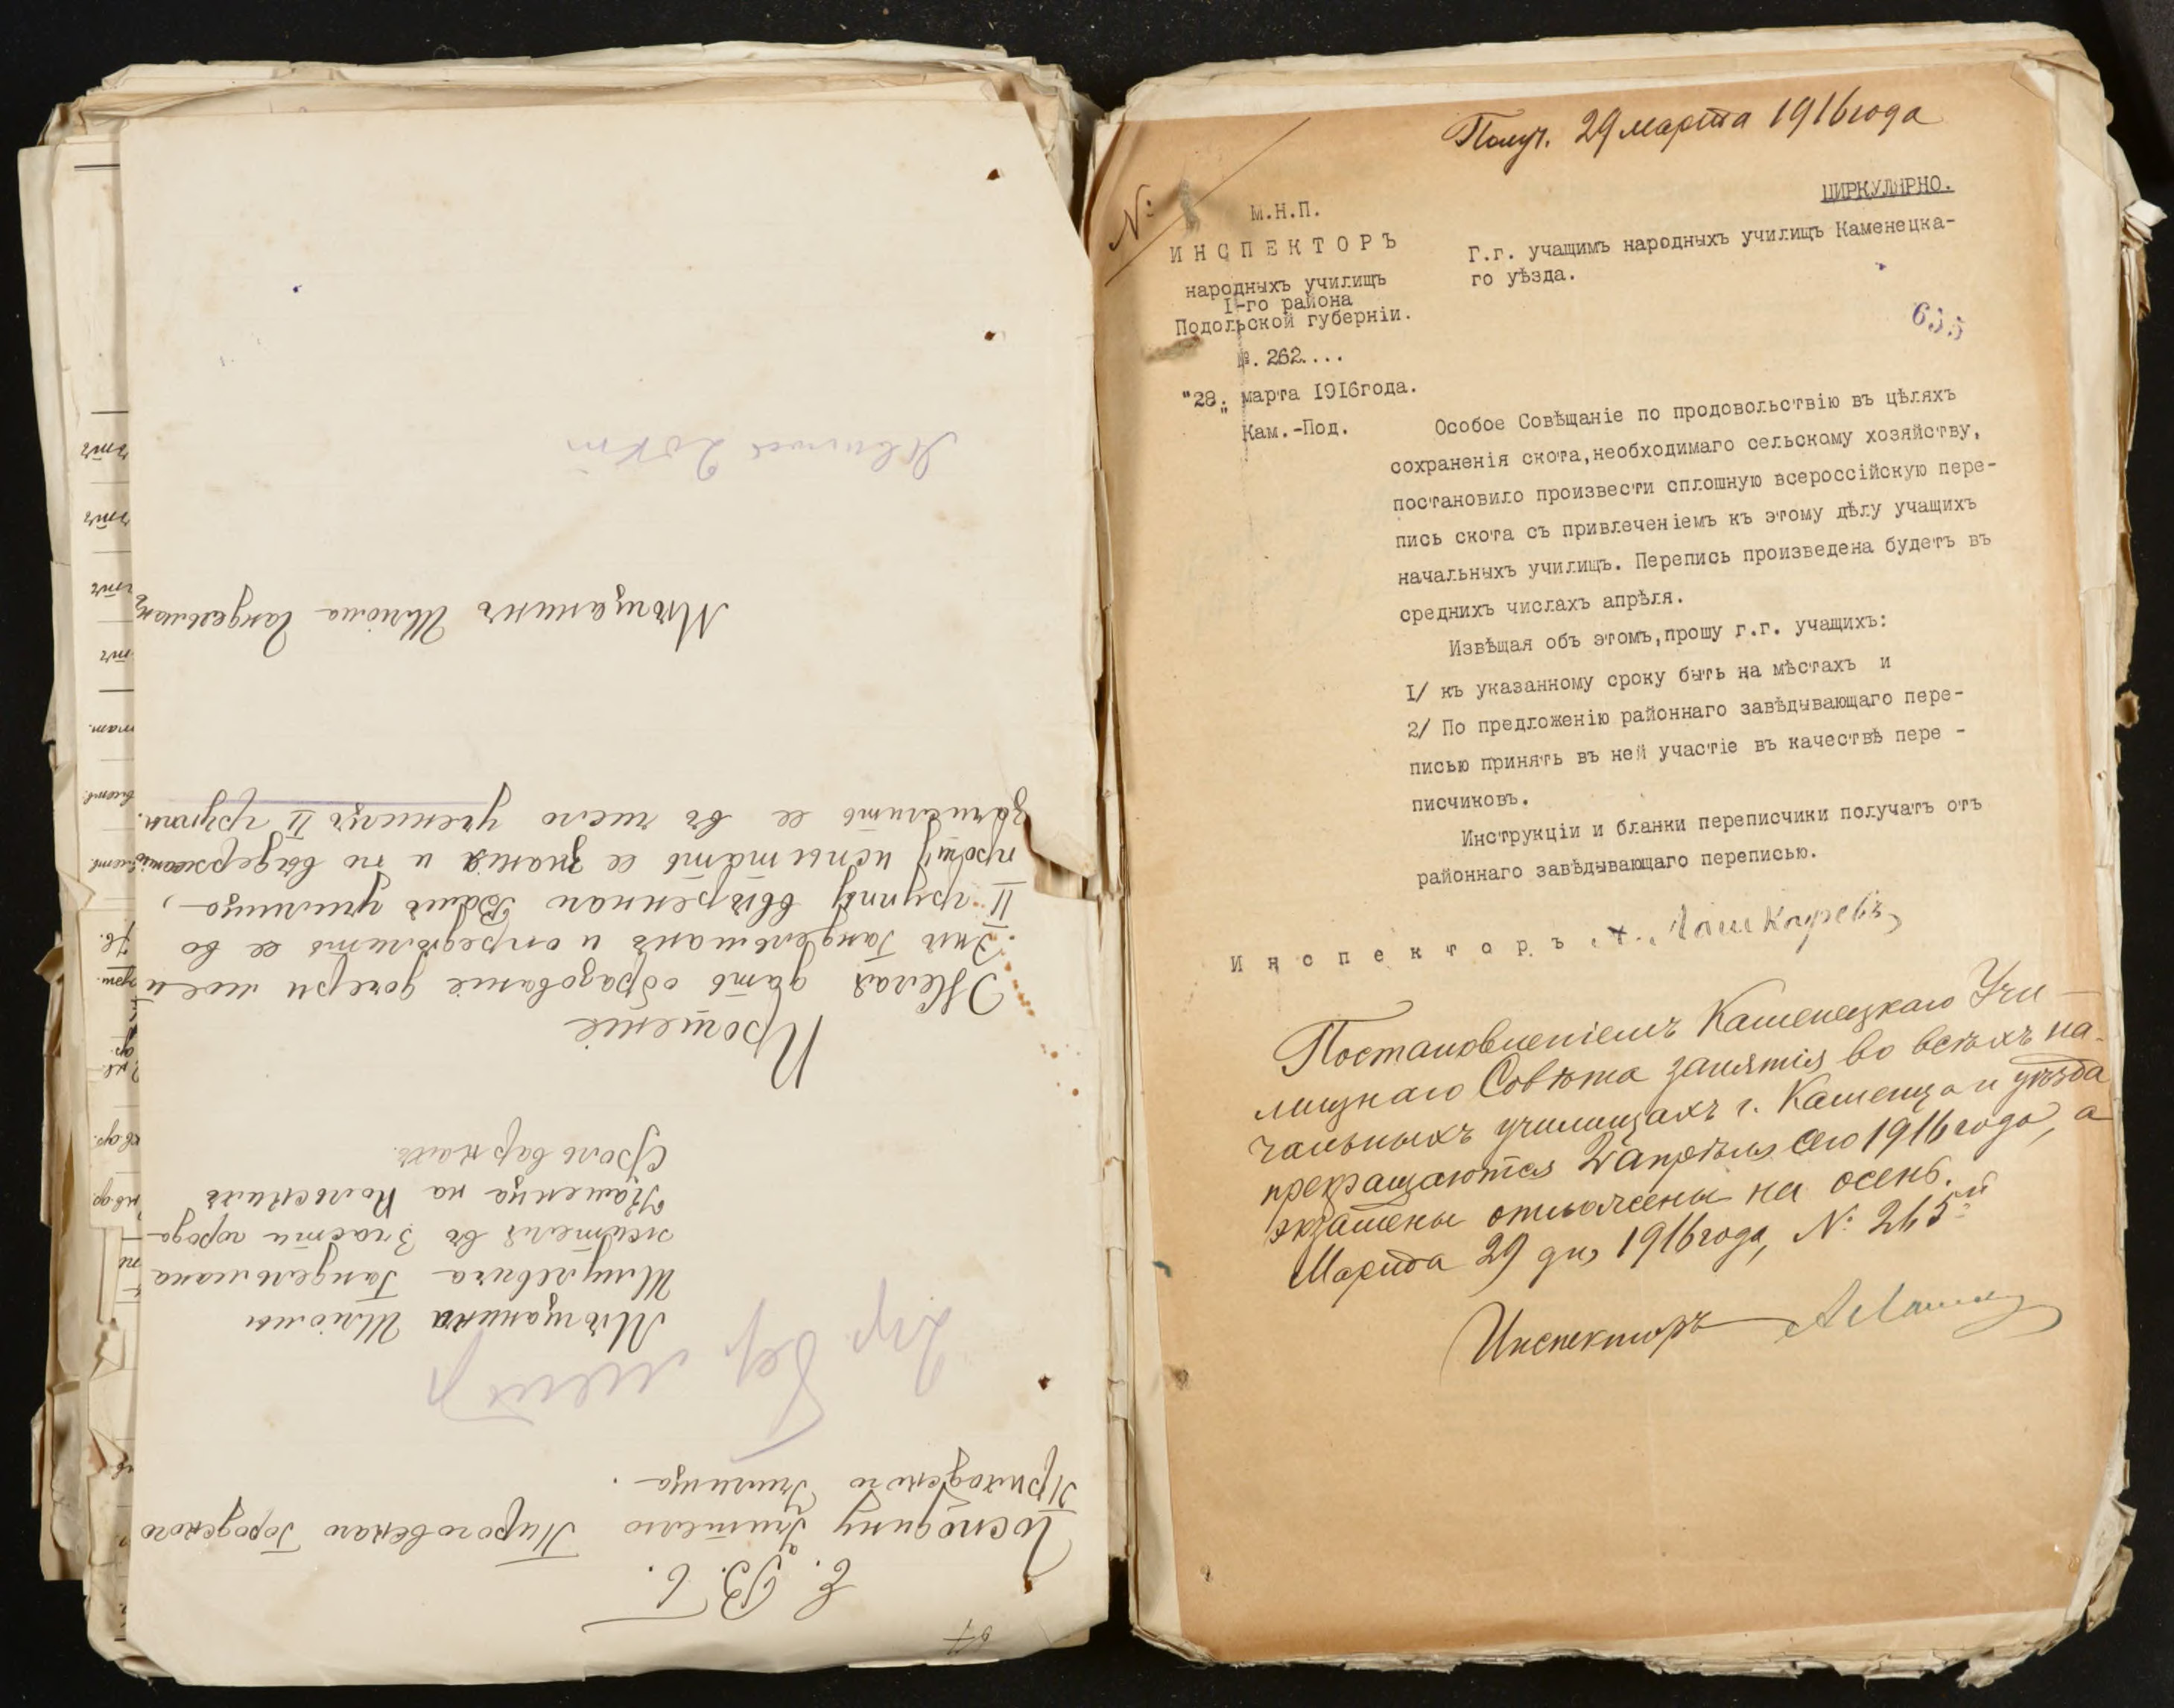 Е. В. Б.
Господину Учителю Пироговскаго Городского
Приходского Училища.
Мѣщанина Шломы
Шмулевича Гандельмана
жителя въ 3 части города
Каменца на Польскихъ
Фольваркахъ.
Прошеніе
Желая дать образованіе дочери моей
Энѣ Гандельманъ и опредѣлить ее во
II группу ввѣреннаго Вамъ училища,
прошу испытать ее знанія и по выдержаніи
зачислить ее въ число ученицъ II группы.
Мѣщанинъ Шлюма Гандельманъ
Получ. 29 марта 1916 года
№
ЦИРКУЛЯРНО.
М.Н.П.
ИНСПЕКТОРЪ
народныхъ училищъ
I-го района
Подольской губерніи.
№. 262....
"28" марта 1916года.
Кам.-Под.
Г.г. учащимъ народныхъ училищъ Каменецка-
го уѣзда.
635
Особое Совѣщаніе по продовольствію въ цѣляхъ
сохраненія скота,необходимаго сельскому хозяйству,
постановило произвести сплошную всероссійскую пере-
пись скота съ привлеченіемъ къ этому дѣлу учащихъ
начальныхъ училищъ. Перепись произведена будетъ въ
среднихъ числахъ апрѣля.
Извѣщая объ этомъ,прошу г.г. учащихъ:
I/ къ указанному сроку быть на мѣстахъ и
2/ По предложенію районнаго завѣдывающаго пере-
писью принять въ ней участіе въ качествѣ пере -
писчиковъ.
Инструкціи и бланки переписчики получатъ отъ
районнаго завѣдывающаго переписью.
Инспекторъ А. Лашкаревъ
Постановленіемъ Каменецкаго Учи-
лищнаго Совѣта занятія во всѣхъ на-
чальныхъ училищахъ г. Каменца и уѣзда
прекращаются 2 апрѣля сего 1916 года, а
экзамены отложены на осень.
Марта 29 дня 1916 года, № 265й
Инспекторъ